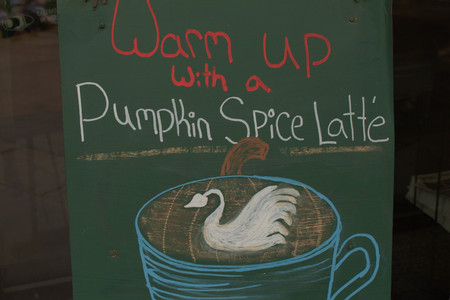 Warm up
with a
Pumpkin Spice Latté